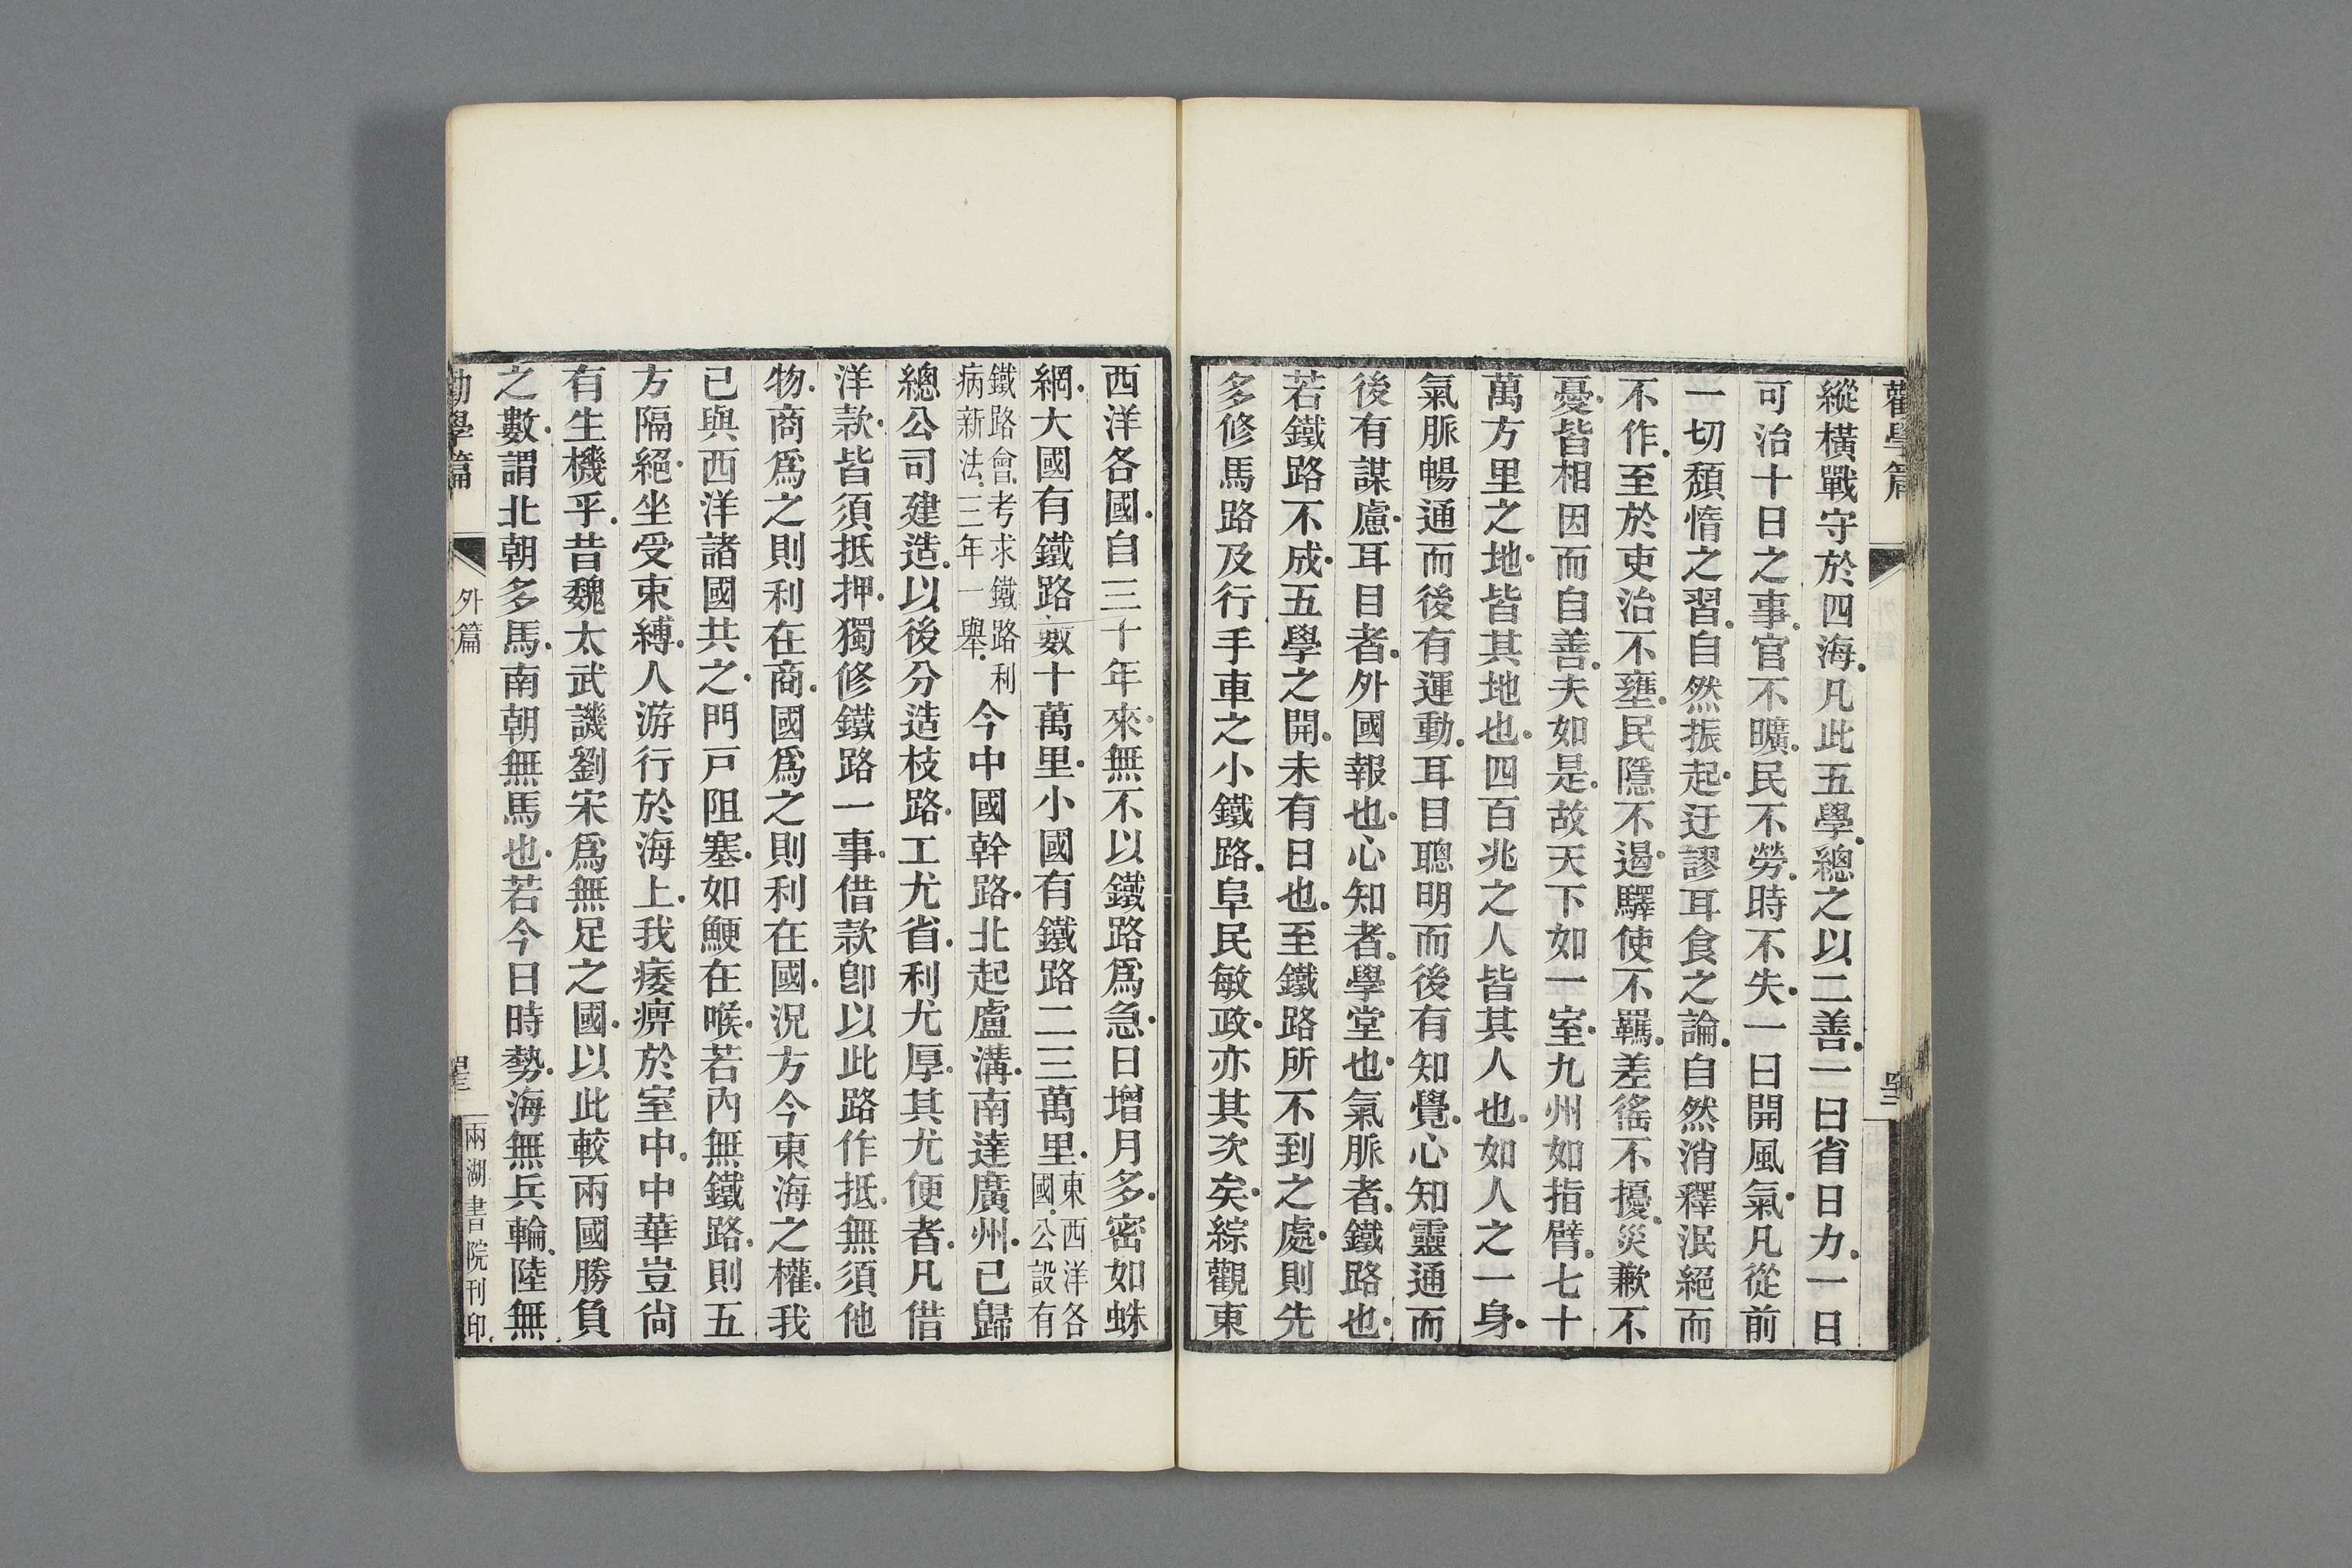 勸學篇
縱橫戰守於四海.凡此五學.總之以二善.一曰省日力.一日
可治十日之事.官不曠.民不勞.時不失.一曰開風氣.凡從前
一切頹惰之習.自然振起.迂謬耳食之論.自然消釋泯絕而
不作.至於吏治不壅.民隱不遏.驛使不羈.差徭不擾.災歉不
憂.皆相因而自善.夫如是.故天下如一室.九州如指臂.七十
萬方里之地.皆其地也.四百兆之人皆其人也.如人之一身.
氣脈暢通而後有運動.耳目聰明而後有知覺.心知靈通而
後有謀慮.耳目者.外國報也.心知者.學堂也.氣脈者.鐵路也.
若鐵路不成.五學之開.未有日也.至鐵路所不到之處.則先
多修馬路及行手車之小鐵路.阜民敏政.亦其次矣.綜觀東
西洋各國.自三十年來.無不以鐵路爲急.日增月多.密如蛛
網.大國有鐵路數十萬里.小國有鐵路二三萬里.東西洋各國.公設有
鐵路會.考求鐵路利病新法.三年一舉.今中國幹路.北起盧溝.南達廣州.已歸
總公司建造.以後分造枝路.工尤省.利尤厚.其尤便者.凡借
洋款.皆須抵押.獨修鐵路一事.借款卽以此路作抵.無須他
物.商爲之則利在商.國爲之則利在國.況方今東海之權.我
已與西洋諸國共之.門戸阻塞.如鯁在喉.若內無鐵路.則五
方隔絕.坐受束縛.人游行於海上.我痿痹於室中.中華豈尙
有生機乎.昔魏太武譏劉宋爲無足之國.以此較兩國勝負
之數.謂北朝多馬.南朝無馬也.若今日時勢.海無兵輪.陸無
勸學篇
外篇
兩湖書院刊印